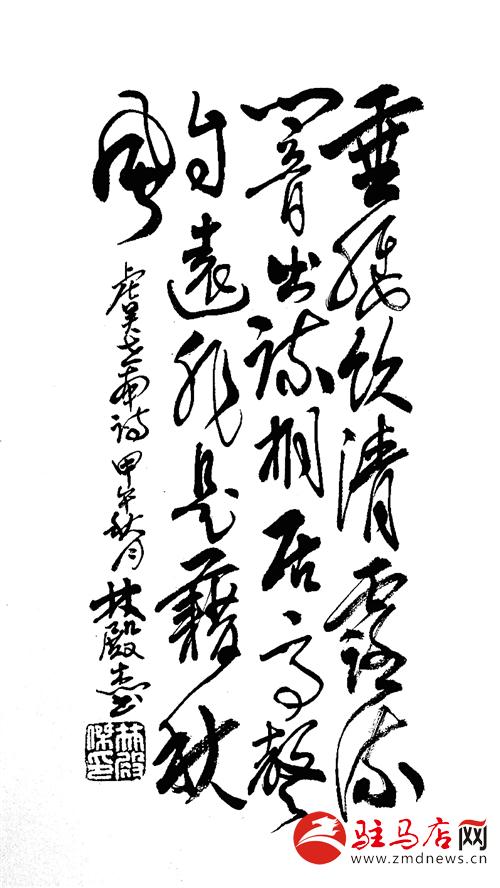 垂緌飲清露流
響出疏桐居高聲
自遠非是藉秋
風
虞世南诗 甲午秋月 林殿杰书
林殿傑印
驻马店网
www.zmdnews.cn